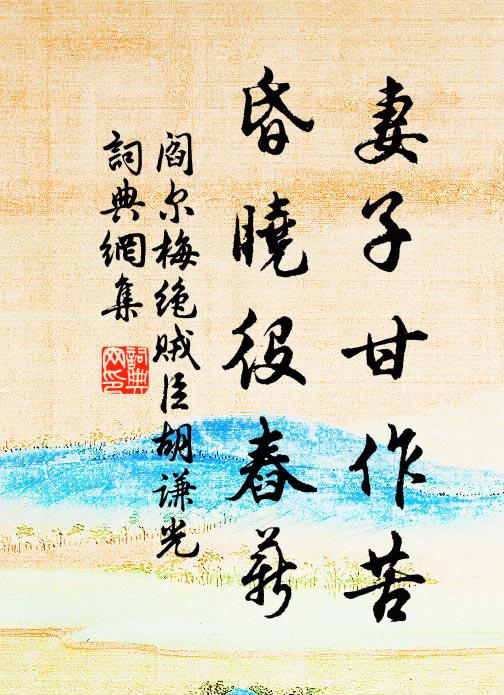 妻子甘作苦
昏曉役舂薪
阎尔梅绝贼臣胡谦光
詞典網集
詞典
网印